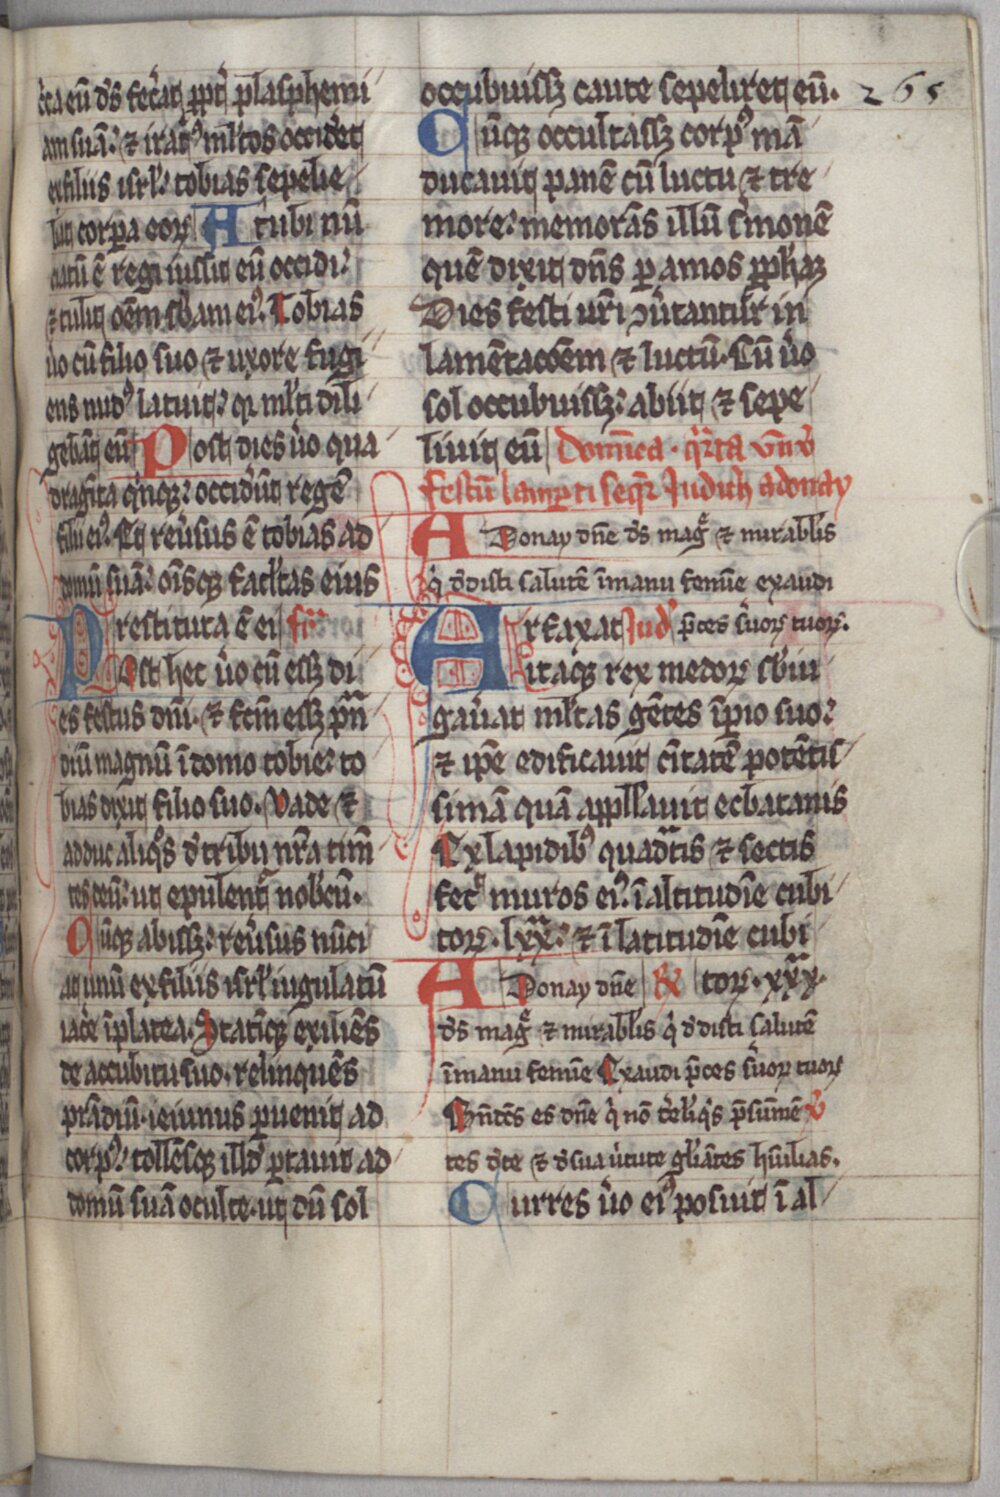 c̄ca eū ds̄ fec̄at ꝓpt̄ plasphemi
am suā: ⁊ iratꝰ ml̄tos occidet
ex filiis isrl̄: tobias sepelie
bat corpa eoꝝ At ubi nū
tiatū ē regi iussit eū occidi:
⁊ tulit oēm sb̄am eiꝰ. Tobias
ūo cū filio suo ⁊ uxore fugi
ens nudꝰ latuit: qr ml̄ti dili
gebāt eū Post dies ūo qua
dragīta qinqꝫ: occidūt regē
filii eiꝰ. Et reūsus ē tobias ad
domū suā: oīsqꝫ facl̄tas eius
restituta ē ei fr̄
Post hec ūo cū essꝫ di
es festus dnī. ⁊ fcm̄ essꝫ pn̄
diū magnū ī domo tobie: to
bias dixit filio suo. Vade ⁊
adduc aliqs d̄ tribu nr̄a tim̄
tes deū: ut epulent nob̄cū.
Cūqꝫ abissꝫ: reūsus nūci
at unū ex filiis isrl̄ iugulatū
iac̄e ī platea. Statīqꝫ exiliēs
de accubitu suo. relinquēs
prādiū. ieiunus puenit ad
corpꝰ: tollēsqꝫ illd̄ portauit ad
domū suā oculte. ut dū sol
occubuissꝫ caute sepeliret eū. 265
Cūqꝫ occultassꝫ corpꝰ mā
ducauit panē cū luctu ⁊ tre
more: memorās illū s̄monē
quē dixit dn̄s p amos ꝓph̄aꝫ
Dies festi ur̄i ꝯūtantur in
lamētacōem ⁊ luctū. Cū ūo
sol occubuissꝫ: abiit ⁊ sepe
liuit eū Domīca. qr̄ta
festū lamp̄ti seqr̄ Judith adonay
Adonay dn̄e ds̄ maḡ ⁊ mirabl̄is
q̄ d̄disti salutē ī manu femīe exaudi
Arfaxat Jud̄ p̄ces s̄uoꝝ tuoꝝ.
itaqꝫ rex medoꝝ sb̄iu
gaūat ml̄tas gētes īpio suo:
⁊ ipē edificauit ciuitatē potētis
simā quā appll̄auit ecbatanis
Ex lapidibꝰ quad̄tis ⁊ sectis
fec̄ muros eiꝰ. ī altitudīe cubi
toꝝ. lxx: ⁊ ī latitudīe cubi
Adonay dn̄e ℟ toꝝ. xxx.
ds̄ maḡ ⁊ mirabl̄is q̄ d̄disti salutē
ī manu femīe Exaudi p̄ces s̄uoꝝ tuoꝝ
es dn̄e q̄ nō d̄reliqs p̄sumē ℣
tes d̄ te ⁊ d̄ sua ūtute gl̄iātes hūilias.
Turres ūo eiꝰ posuit ī al